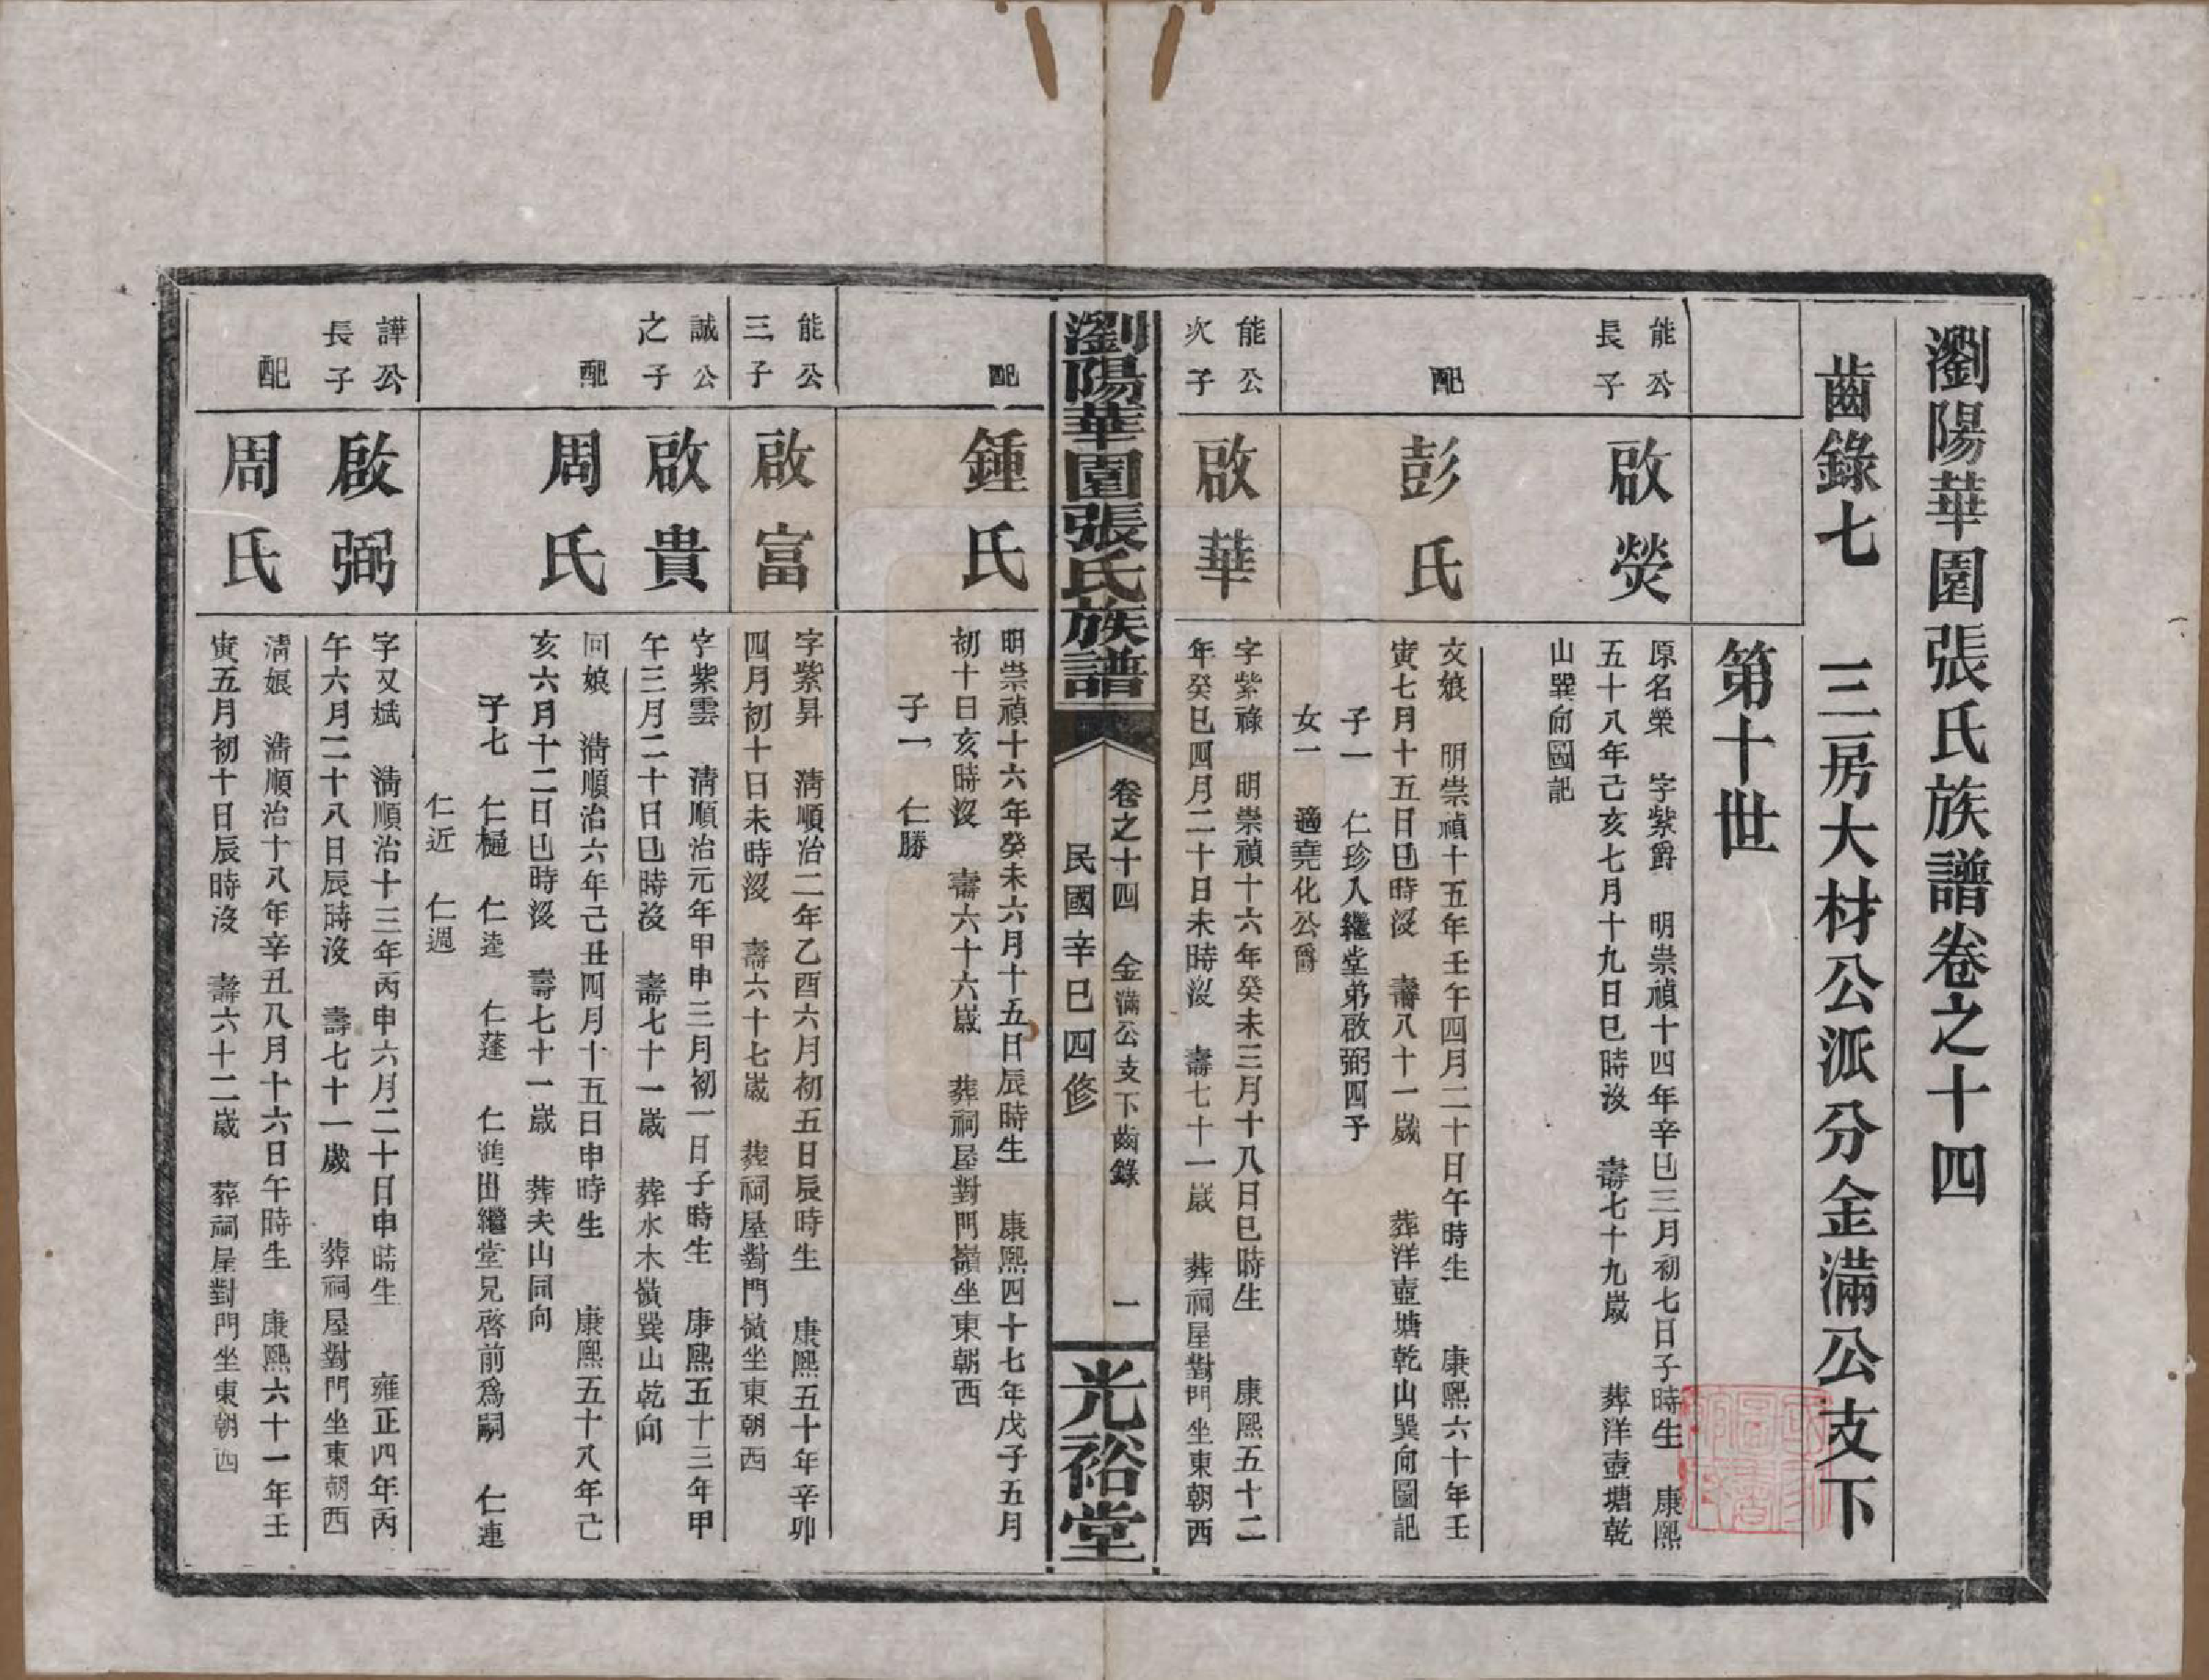 瀏陽華園張氏族譜卷之十四
齒錄七　三房大材公派分金滿公支下
第十世
能公長子
啟熒
原名榮　字紫爵　明崇禎十四年辛巳三月初七日子時生　康熙
五十八年己亥七月十九日巳時沒　壽七十九歲　葬洋壺塘乾
山巽向圖記
配
彭氏
文娘　明崇禎十五年壬午四月二十日午時生　康熙六十年壬
寅七月十五日巳時沒　壽八十一歲　葬洋壺塘乾山巽向圖記
子一　仁珍入繼堂弟啟弼四子
女一　適堯化公爵
能公次子
啟華
字紫祿　明崇禎十六年癸未三月十八日巳時生　康熙五十二
年癸巳四月二十日未時沒　壽七十一歲　葬祠屋對門坐東朝西
瀏陽華園張氏族譜
卷之十四　金滿公支下齒錄　一
民國辛巳四修
光裕堂
配
鍾氏
明崇禎十六年癸未六月十五日辰時生　康熙四十七年戊子五月
初十日亥時沒　壽六十六歲　葬祠屋對門嶺坐東朝西
子一　仁勝
能公三子
啟富
字紫昇　清順治二年乙酉六月初五日辰時生　康熙五十年辛卯
四月初十日未時沒　壽六十七歲　葬祠屋對門嶺坐東朝西
誠公之子
啟貴
字紫雲　清順治元年甲申三月初一日子時生　康熙五十三年甲
午三月二十日巳時沒　壽七十一歲　葬水木嶺巽山乾向
配
周氏
回娘　清順治六年己丑四月十五日申時生　康熙五十八年己
亥六月十二日巳時沒　壽七十一歲　葬夫山同向
子七　仁樋　仁逵　仁蓬　仁進出繼堂兄啓前爲嗣　仁連
仁近　仁週
譁公長子
啟弼
字又斌　清順治十三年丙申六月二十日申時生　雍正四年丙
午六月二十八日辰時沒　壽七十一歲　葬祠屋對門坐東朝西
配
周氏
清娘　清順治十八年辛丑八月十六日午時生　康熙六十一年壬
寅五月初十日辰時沒　壽六十二歲　葬祠屋對門坐東朝西